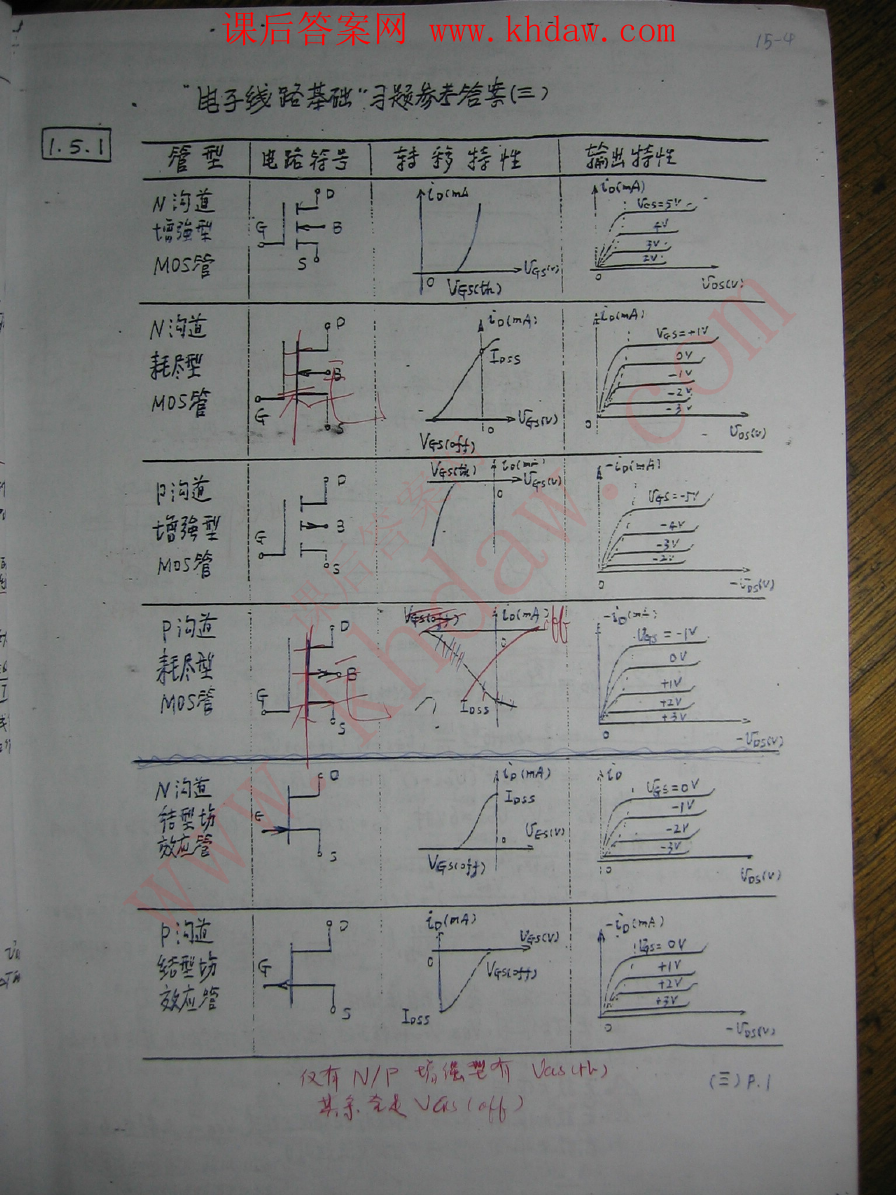 课后答案网 www.khdaw.com
15-4
"电子线路基础"习题参考答案(三)
1.5.1
管型 电路符号 转移特性 输出特性
N沟道
增强型
MOS管
G D B S
iD(mA
0 VGS(th) VGS(V)
iD(mA)
VGS=5V
4V
3V
2V
0 VDS(V)
N沟道
耗尽型
MOS管
G D B S
iD(mA)
IDSS
VGS(off) 0 VGS(V)
iD(mA)
VGS=+1V
0V
-1V
-2V
-3V
0 VDS(V)
P沟道
增强型
MOS管
G D B S
VGS(th) iD(mA)
0 VGS(V)
-iD(mA)
VGS=-5V
-4V
-3V
-2V
0 -VDS(V)
P沟道
耗尽型
MOS管
G D B S
VGS(off) iD(mA) off
0
IDSS
-iD(mA)
VGS=-1V
0V
+1V
+2V
+3V
0 -VDS(V)
N沟道
结型场
效应管
G D S
iD(mA)
IDSS
0 VGS(V)
VGS(off)
iD
VGS=0V
-1V
-2V
-3V
0 VDS(V)
P沟道
结型场
效应管
G D S
iD(mA)
0 VGS(V)
VGS(off)
IDSS
-iD(mA)
VGS=0V
+1V
+2V
+3V
0 -VDS(V)
仅有 N/P 增强型有 VGS(th)
其余全是 VGS(off)
(三) P.1
课后答案网
www.khdaw.com